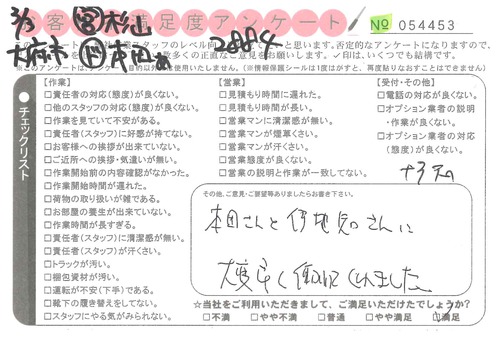 お客様満足度アンケート
№ 054453
3/3 杉山
大府市 2884
否定的なアンケートになりますので、
多数の正直なご意見をお願いします。✓印は、いくつでも結構です。
【作業】
□責任者の対応(態度)が良くない。
□他のスタッフの対応(態度)が良くない。
□作業を見ていて不安がある。
□責任者(スタッフ)に好感が持てない。
□お客様への挨拶が出来ていない。
□ご近所への挨拶・気遣いが無い。
□作業開始前の内容確認がなかった。
□作業開始時間が遅れた。
□荷物の取り扱いが雑である。
□お部屋の養生が出来ていない。
□作業時間が長すぎる。
□責任者(スタッフ)に清潔感が無い。
□責任者(スタッフ)が汗くさい。
□トラックが汚い。
□梱包資材が汚い。
□運転が不安(下手)である。
□靴下の履き替えをしてない。
□スタッフにやる気がみられない。
【営業】
□見積もり時間に遅れた。
□見積もり時間が長い。
□営業マンに清潔感が無い。
□営業マンが煙草くさい。
□営業マンが汗くさい。
□営業態度が良くない。
□営業の説明と作業が一致してない。
【受付・その他】
□電話の対応が良くない。
□オプション業者の説明
・作業が良くない。
□オプション業者の対応
(態度)が良くない。
チェックリスト
その他、ご意見・ご要望等ありましたらお書き下さい。
本田さんと伊地知さんに
大変良く働いてくれました
☆当社をご利用いただきまして、ご満足いただけたでしょうか?
□不満 □やや不満 □普通 □やや満足 □満足